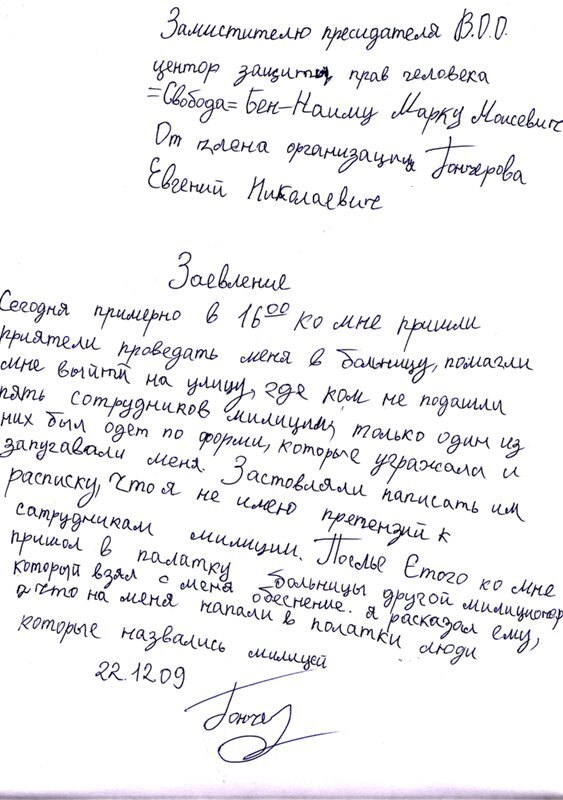 Замистителю пресидателя В.О.О.
центор защиты прав человека
=Свобода= Бен-Наиму Марку Моисевич
От члена организации Гончерова
Евгений Николаевич
Заевление
Сегодня примерно в 16⁰⁰ ко мне пришли
приятели проведать меня в больницу, помагли
мне выйти на улицу, где ком не подашли
пять сотрудников милиции, только один из
них был одет по форми, которые угражала и
запугавали меня. Застовляли написать им
расписку, что я не имею претензий к
сатрудникам милиции. Послье Етого ко мне
пришол в палатку больницы другой милиционер
который взял с меня обеснение. я расказал ему,
а что на меня напали в полатки люди
которые назвались милицей
22.12.09
Гонче